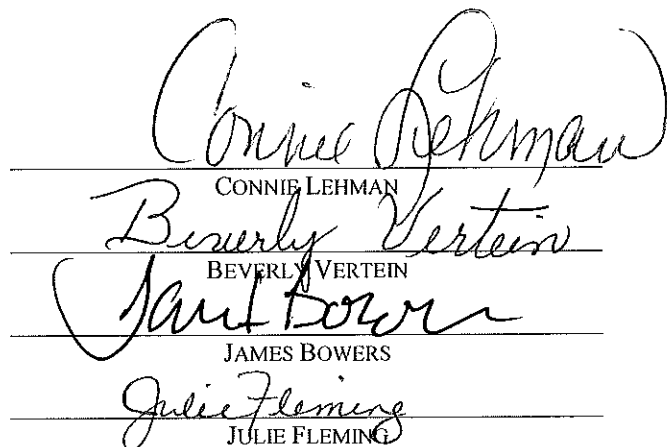 Connie Lehman
CONNIE LEHMAN
Beverly Vertein
BEVERLY VERTEIN
James Bowers
JAMES BOWERS
Julie Fleming
JULIE FLEMING